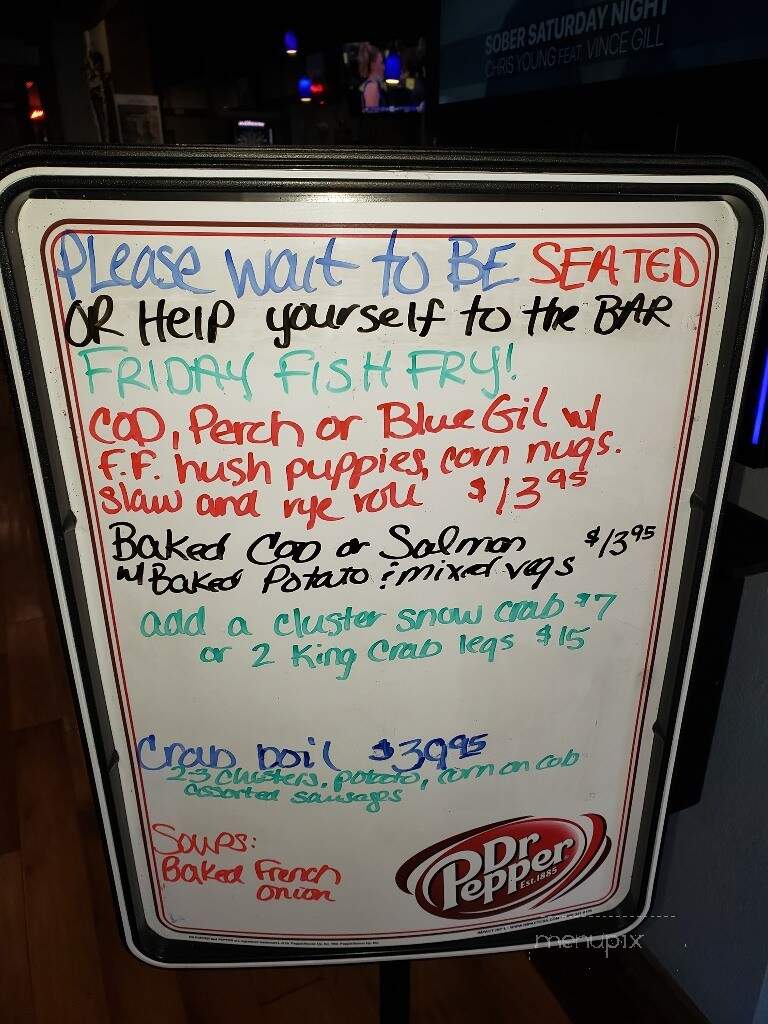 SOBER SATURDAY NIGHT
CHRIS YOUNG FEAT. VINCE GILL
PLease wait to BE SEATED
OR Help yourself to the BAR
FRIDAY FISH FRY!
COD, Perch or Blue Gil w/
F.F. hush puppies, corn nugs.
slaw and rye roll $13.95
Baked COD or Salmon $13.95
w/ Baked Potato & mixed vegs
add a cluster snow crab $7
or 2 King Crab legs $15
Crab boil $39.95
2-3 clusters, potato, corn on cob
assorted sausages
Soups:
Baked French
onion
Dr
Pepper
Est. 1885
menupix